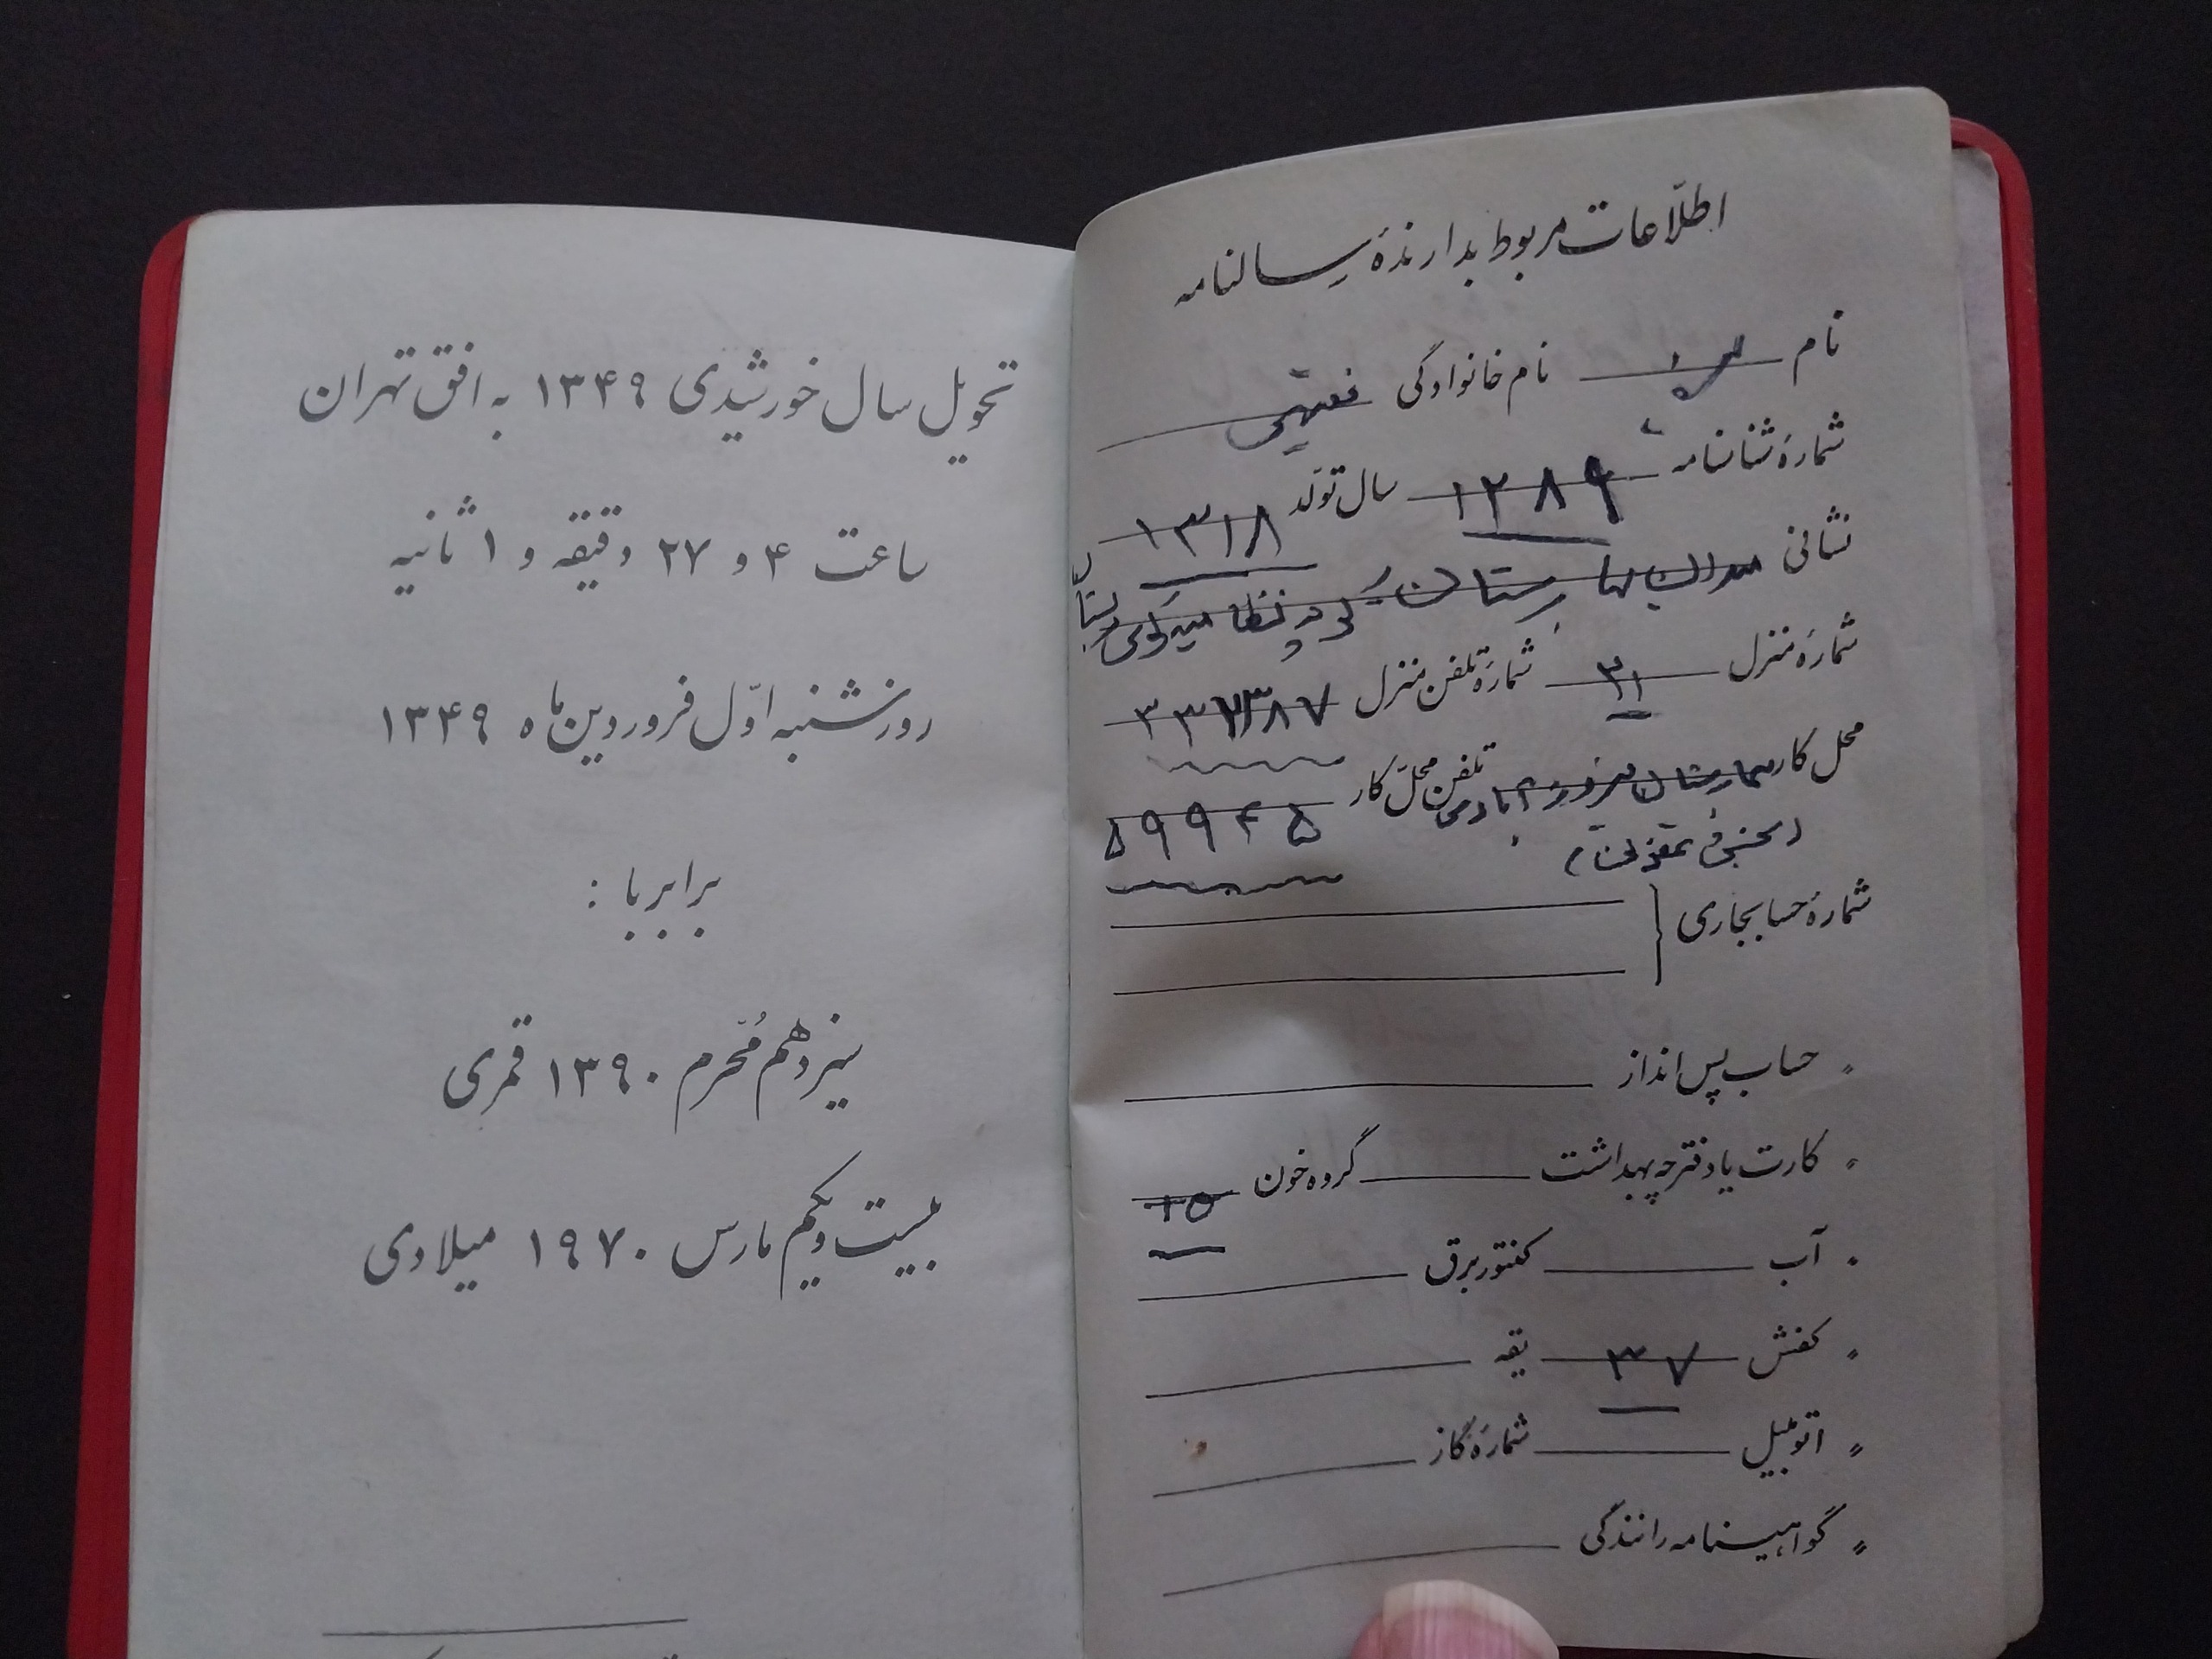 تحویل سال خورشیدی ۱۳۴۹ به افق تهران
ساعت ۴ و ۲۷ دقیقه و ۱ ثانیه
روز شنبه اوّل فروردین ماه ۱۳۴۹
برابر با :
سیزدهم مُحرّم ۱۳۹۰ قمری
بیست و یکم مارس ۱۹۷۰ میلادی
اطلّاعات مربوط بدارندهٔ سالنامه
نام نام خانوادگی فقیهی
شمارهٔ شناسنامه ۱۲۸۹ سال تولّد ۱۳۱۸
نشانی میدان بهارستان کوچه نظامیه کوی
شمارهٔ منزل ۳۱ شمارهٔ تلفن منزل
محل کار بیمارستان فیروزآبادی تلفن محلّ کار ۵۹۹۴۵
شمارهٔ حساب جاری
〃 حساب پس انداز
〃 کارت یا دفترچه بهداشت گروه خون
〃 آب کنتور برق
〃 کفش ۳۷ یقه
〃 اتومبیل شمارهٔ گاز
〃 گواهینامه رانندگی